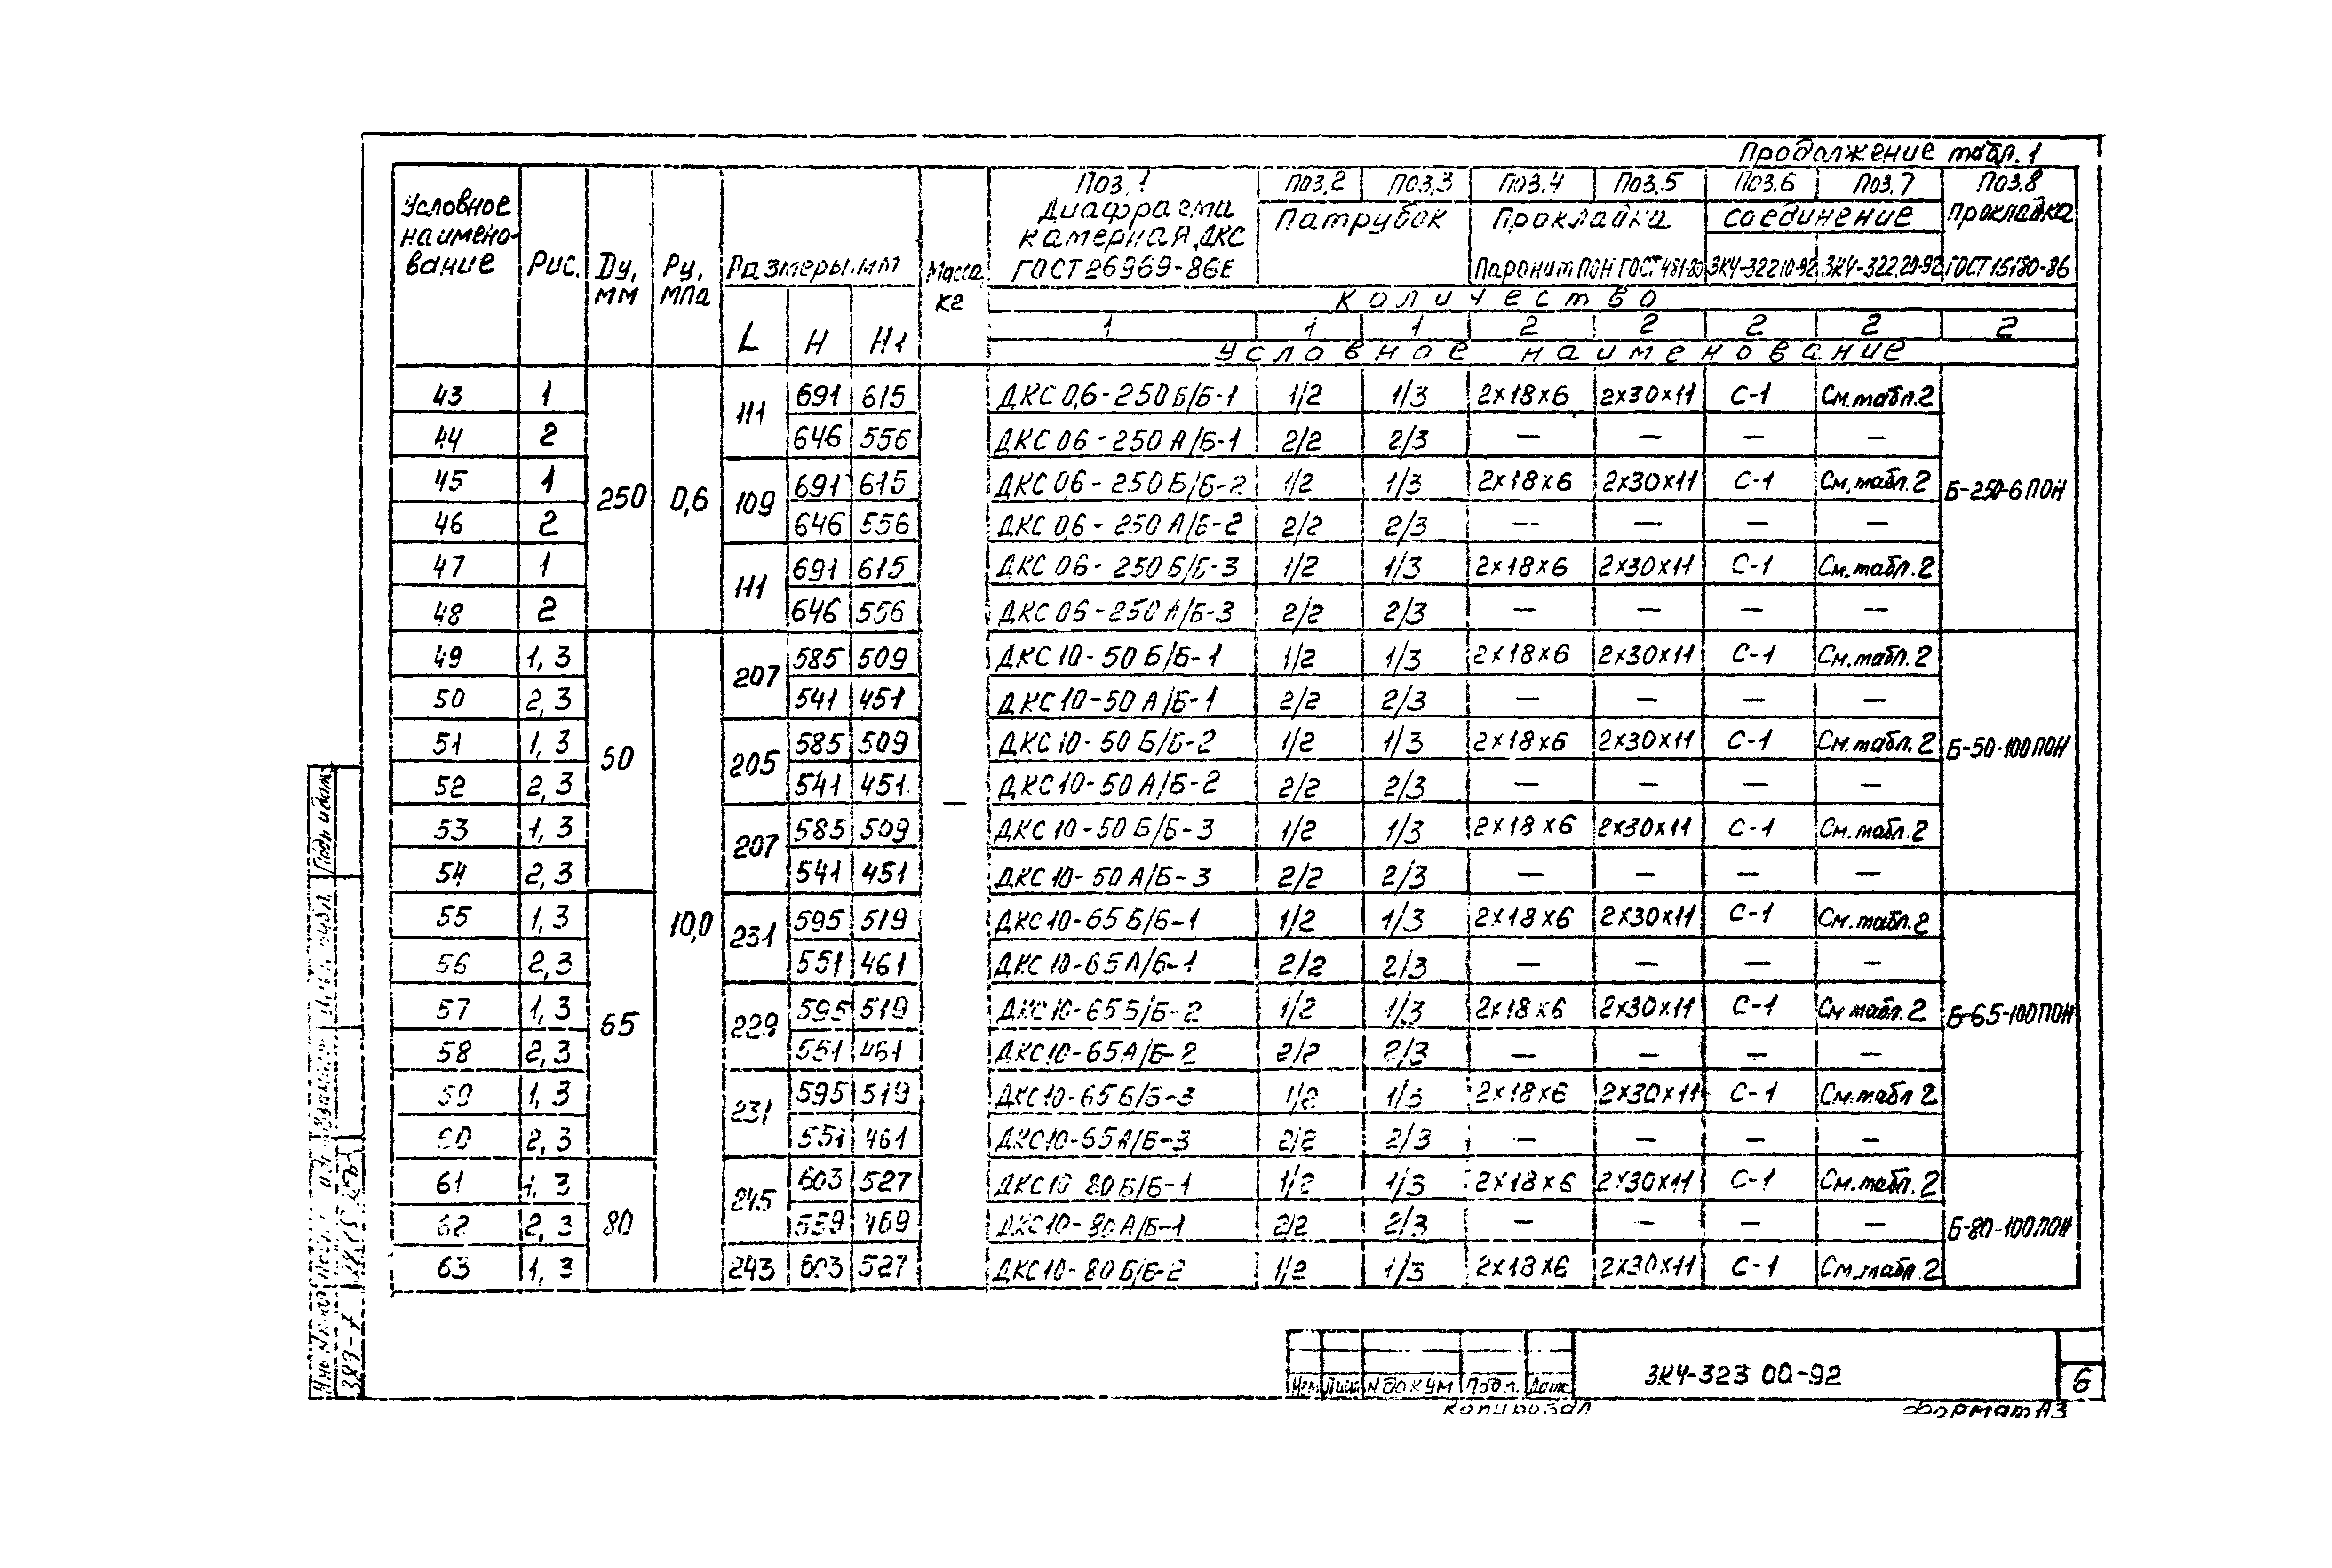 Продолжение табл. 1
Условное наимено-вание Рис. Dу, мм Ру, МПа Размеры, мм Масса, кг Поз. 1 Поз. 2 Поз. 3 Поз. 4 Поз. 5 Поз. 6 Поз. 7 Поз. 8
Диафрагма камерная, ДКС ГОСТ 26969-86Е Патрубок Прокладка Соединение Прокладка
Паронит ПОН ГОСТ 481-80 ЗК4-322.10-92 ЗК4-322.20-92 ГОСТ 15180-86
L H H1
Количество
1 1 1 2 2 2 2 2
Условное наименование
43 1 250 0,6 111 691 615 — ДКС 0,6-250 Б/Б-1 1/2 1/3 2×18×6 2×30×11 С-1 См. табл. 2 Б-250-6 ПОН
44 2 646 556 ДКС 06-250 А/Б-1 2/2 2/3 — — — —
45 1 109 691 615 ДКС 06-250 Б/Б-2 1/2 1/3 2×18×6 2×30×11 С-1 См. табл. 2
46 2 646 556 ДКС 0,6-250 А/Б-2 2/2 2/3 — — — —
47 1 111 691 615 ДКС 06-250 Б/Б-3 1/2 1/3 2×18×6 2×30×11 С-1 См. табл. 2
48 2 646 556 ДКС 06-250 А/Б-3 2/2 2/3 — — — —
49 1, 3 50 10,0 207 585 509 ДКС 10-50 Б/Б-1 1/2 1/3 2×18×6 2×30×11 С-1 См. табл. 2 Б-50-100 ПОН
50 2, 3 541 451 ДКС 10-50 А/Б-1 2/2 2/3 — — — —
51 1, 3 205 585 509 ДКС 10-50 Б/Б-2 1/2 1/3 2×18×6 2×30×11 С-1 См. табл. 2
52 2, 3 541 451 ДКС 10-50 А/Б-2 2/2 2/3 — — — —
53 1, 3 207 585 509 ДКС 10-50 Б/Б-3 1/2 1/3 2×18×6 2×30×11 С-1 См. табл. 2
54 2, 3 541 451 ДКС 10-50 А/Б-3 2/2 2/3 — — — —
55 1, 3 65 231 595 519 ДКС 10-65 Б/Б-1 1/2 1/3 2×18×6 2×30×11 С-1 См. табл. 2 Б-65-100 ПОН
56 2, 3 551 461 ДКС 10-65 А/Б-1 2/2 2/3 — — — —
57 1, 3 229 595 519 ДКС 10-65 Б/Б-2 1/2 1/3 2×18×6 2×30×11 С-1 См табл. 2
58 2, 3 551 461 ДКС 10-65 А/Б-2 2/2 2/3 — — — —
59 1, 3 231 595 519 ДКС 10-65 Б/Б-3 1/2 1/3 2×18×6 2×30×11 С-1 См. табл 2
60 2, 3 551 461 ДКС 10-65 А/Б-3 2/2 2/3 — — — —
61 1, 3 80 245 603 527 ДКС 10 80 Б/Б-1 1/2 1/3 2×18×6 2×30×11 С-1 См. табл. 2 Б-80-100 ПОН
62 2, 3 559 469 ДКС 10-80 А/Б-1 2/2 2/3 — — — —
63 1, 3 243 603 527 ДКС 10-80 Б/Б-2 1/2 1/3 2×18×6 2×30×11 С-1 См. табл. 2
Подп и дата
Изм Лист № докум Подп. Дата
ЗК4-323 00-92
6
Копировал
Формат А3